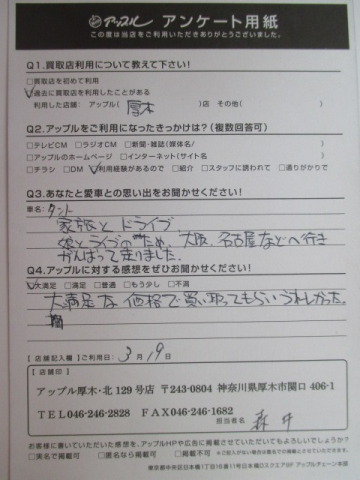 アップル アンケート用紙
この度は当店をご利用いただきありがとうございました。
Q1.買取店利用について教えて下さい!
□買取店を初めて利用
☑過去に買取店を利用したことがある
利用した店舗: アップル( 厚木 )店 その他( )
Q2.アップルをご利用になったきっかけは?(複数回答可)
□テレビCM □ラジオCM □新聞・雑誌(媒体名/ )
□アップルのホームページ □インターネット(サイト名 )
□チラシ □DM ☑利用経験があるので □紹介 □スタッフに誘われて □通りがかりで
Q3.あなたと愛車との思い出をお聞かせください!
車名: タント
家族とドライブ
娘とライブのため、大阪、名古屋などへ行き
がんばって走りました。
Q4.アップルに対する感想をぜひお聞かせください!
☑大満足 □満足 □普通 □もう少し □不満
大満足な価格で買い取ってもらいうれしかった。
[店舗記入欄]ご利用日: 3月19日
[店舗印]
アップル厚木・北129号店 〒243-0804 神奈川県厚木市関口406-1
TEL046-246-2828 FAX046-246-1682
担当者名 森井
お客様に書いていただいた感想を、アップルHPや広告に掲載させていただいてもよろしいでしょうか?
□実名で掲載可 □匿名なら掲載可 □掲載不可
東京都中央区日本橋1丁目16番11号日本橋DスクエアGF アップルチェーン本部